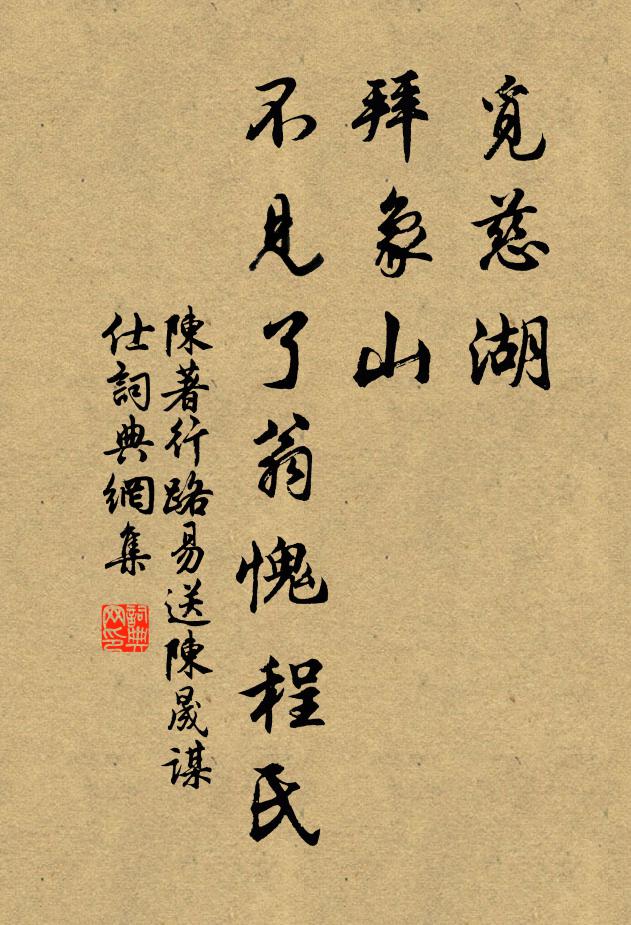 覓慈湖
拜象山
不見了翁愧程氏
陳著行路易送陳晟謀
仕詞典網集
詞典網印